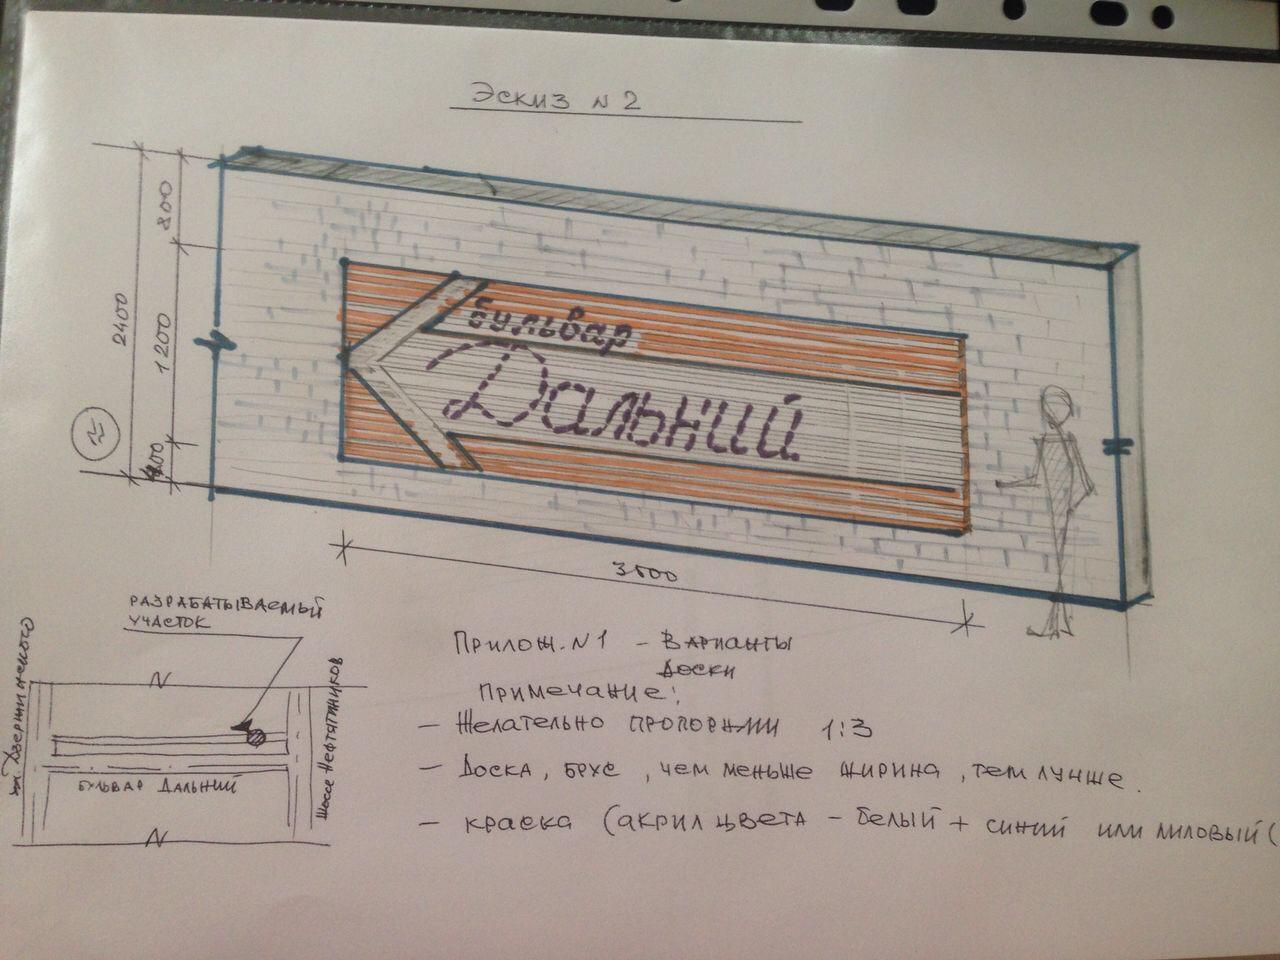 Эскиз N 2
800
2400
1200
400
≈
бульвар
Дальний
3600
РАЗРАБАТЫВАЕМЫЙ
УЧАСТОК
ул. Дзержинского
Шоссе Нефтяников
N
БУЛЬВАР ДАЛЬНИЙ
N
Прилож. N 1 - ВАРИАНТЫ
ДОСКИ
Примечание:
- Желательно пропорции 1:3
- Доска, брус, чем меньше ширина, тем лучше.
- краска (акрил цвета - белый + синий или лиловый (